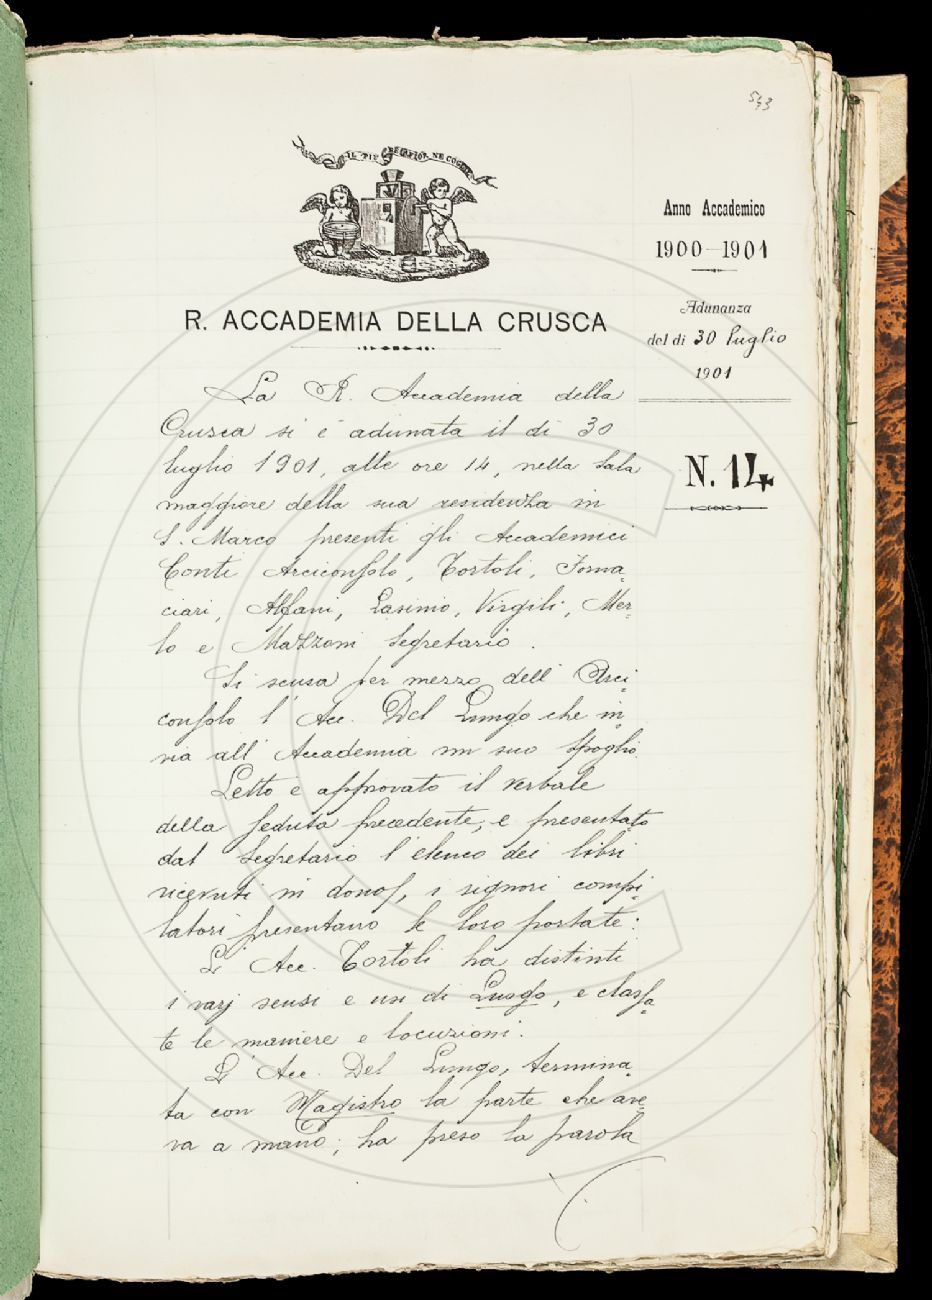 543
IL PIÙ BEL FIOR NE COGLIE
Anno Accademico
1900-1901
Adunanza
del dì 30 luglio
1901
N. 14
R. ACCADEMIA DELLA CRUSCA
La R. Accademia della
Crusca si è adunata il dì 30
luglio 1901, alle ore 14, nella Sala
maggiore della sua residenza in
S. Marco presenti gli Accademici
Conti Arciconsolo, Tortoli, Forna=
ciari, Alfani, Lasinio, Virgili, Mer=
lo e Mazzoni Segretario.
Si scusa per mezzo dell' Arci=
consolo l' Acc. Del Lungo che in=
via all' Accademia un suo spoglio.
Letto e approvato il verbale
della seduta precedente, e presentato
dal Segretario l' elenco dei libri
ricevuti in dono, i signori compi=
latori presentano le loro portate:
L' Acc. Tortoli ha distinti
i varj sensi e usi di Luogo, e classa=
te le maniere e locuzioni.
L' Acc. Del Lungo, termina=
ta con Magistro la parte che ave=
va a mano, ha preso la parola